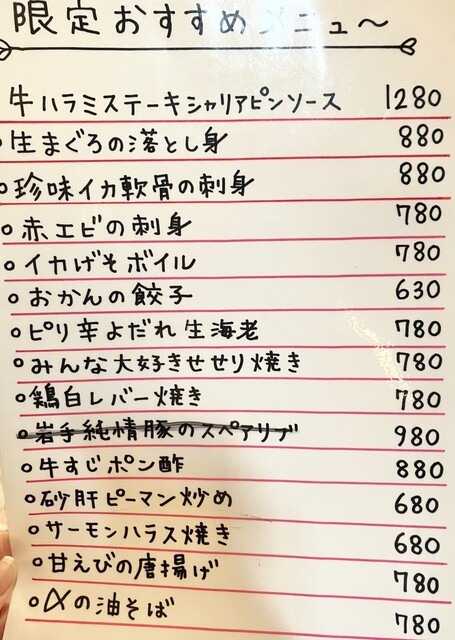 限定おすすめメニュー〜
牛ハラミステーキシャリアピンソース 1280
生まぐろの落とし身 880
珍味イカ軟骨の刺身 880
赤エビの刺身 780
イカげそボイル 780
おかんの餃子 630
ピリ辛よだれ生海老 780
みんな大好きせせり焼き 780
鶏白レバー焼き 780
岩手純情豚のスペアリブ 980
牛すじポン酢 880
砂肝ピーマン炒め 680
サーモンハラス焼き 680
甘えびの唐揚げ 780
〆の油そば 780